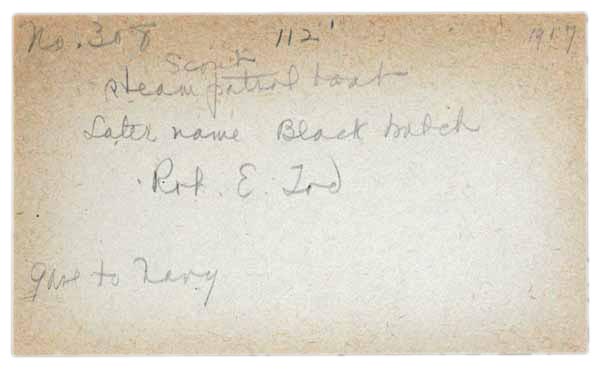 No. 308 112' 1917
Scout
steam patrol boat
Later name Black watch
Rob. E. Tod
gave to Navy